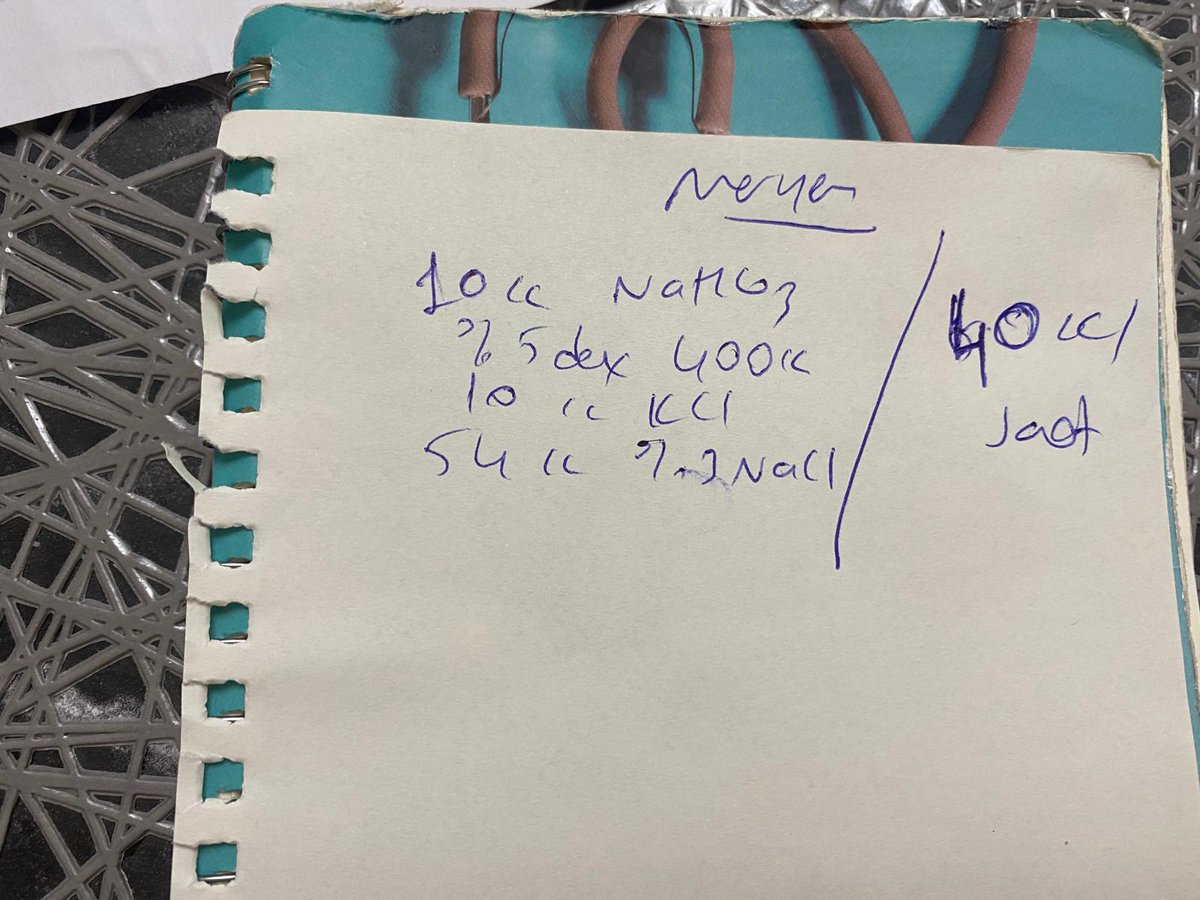 Meryem
10 cc NaHCO3
% 5 dex 400 cc
10 cc KCl
54 cc %.3 NaCl
40 cc/
saat